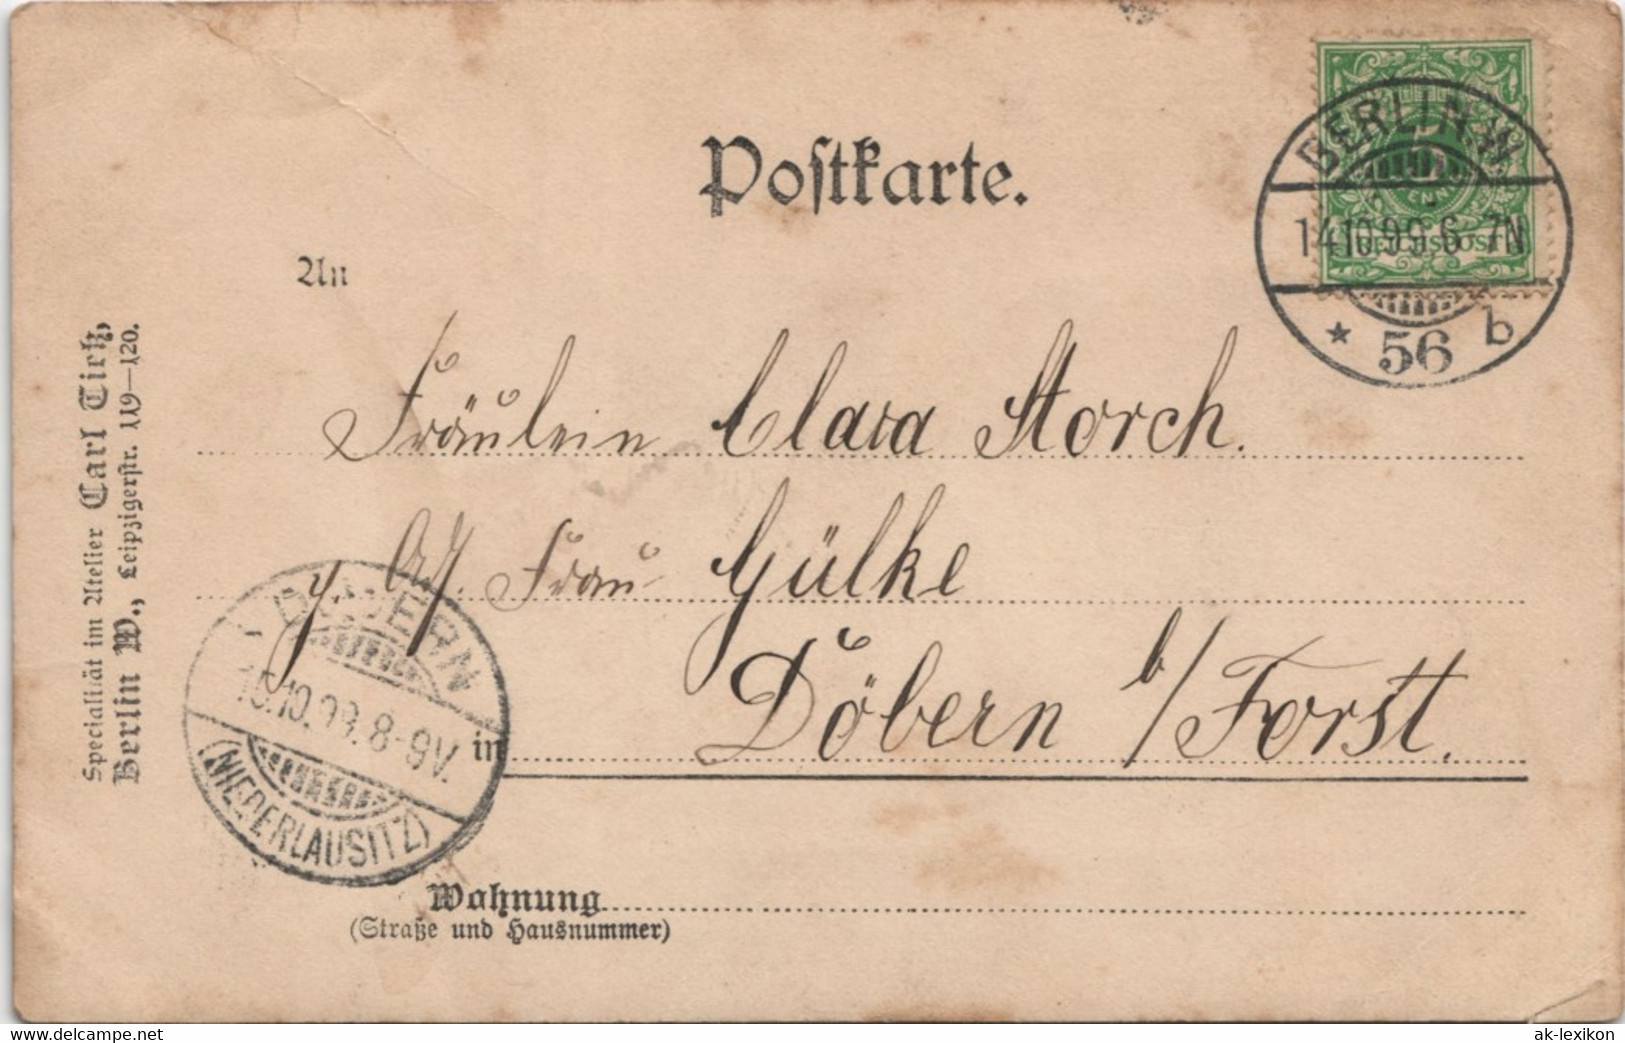 Postkarte.
BERLIN. W.
5
REICHSPOST
14.10.99. 6-7N
* 56 b
An
Fräulein Clara Storch.
Frau Gülke
in Döbern b/Forst.
DÖBERN
15.10.99. 8-9V.
(NIEDERLAUSITZ)
Wohnung
(Straße und Hausnummer)
Specialität im Atelier Carl Tietz,
Berlin W., Leipzigerstr. 119—120.
www.delcampe.net
ak-lexikon